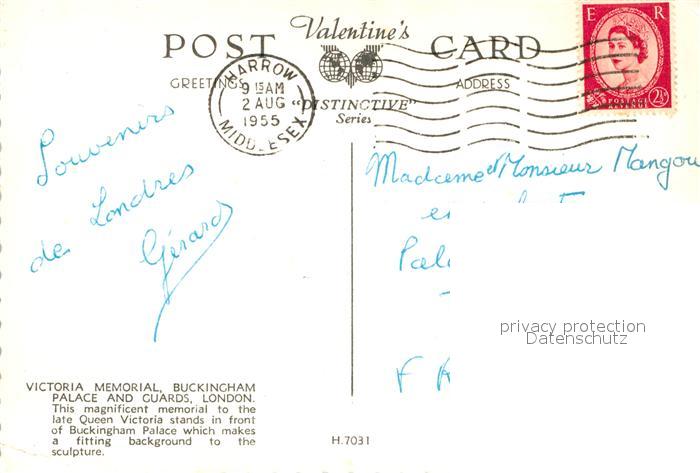 Valentine's
POST CARD
GREETINGS ADDRESS
"DISTINCTIVE"
Series
HARROW
9 15 AM
2 AUG
1955
MIDDLESEX
E R
2½
Souvenirs
de Londres
Gérard
Madame et Monsieur Mangou
privacy protection
Datenschutz
VICTORIA MEMORIAL, BUCKINGHAM
PALACE AND GUARDS, LONDON.
This magnificent memorial to the
late Queen Victoria stands in front
of Buckingham Palace which makes
a fitting background to the
sculpture.
H.7031